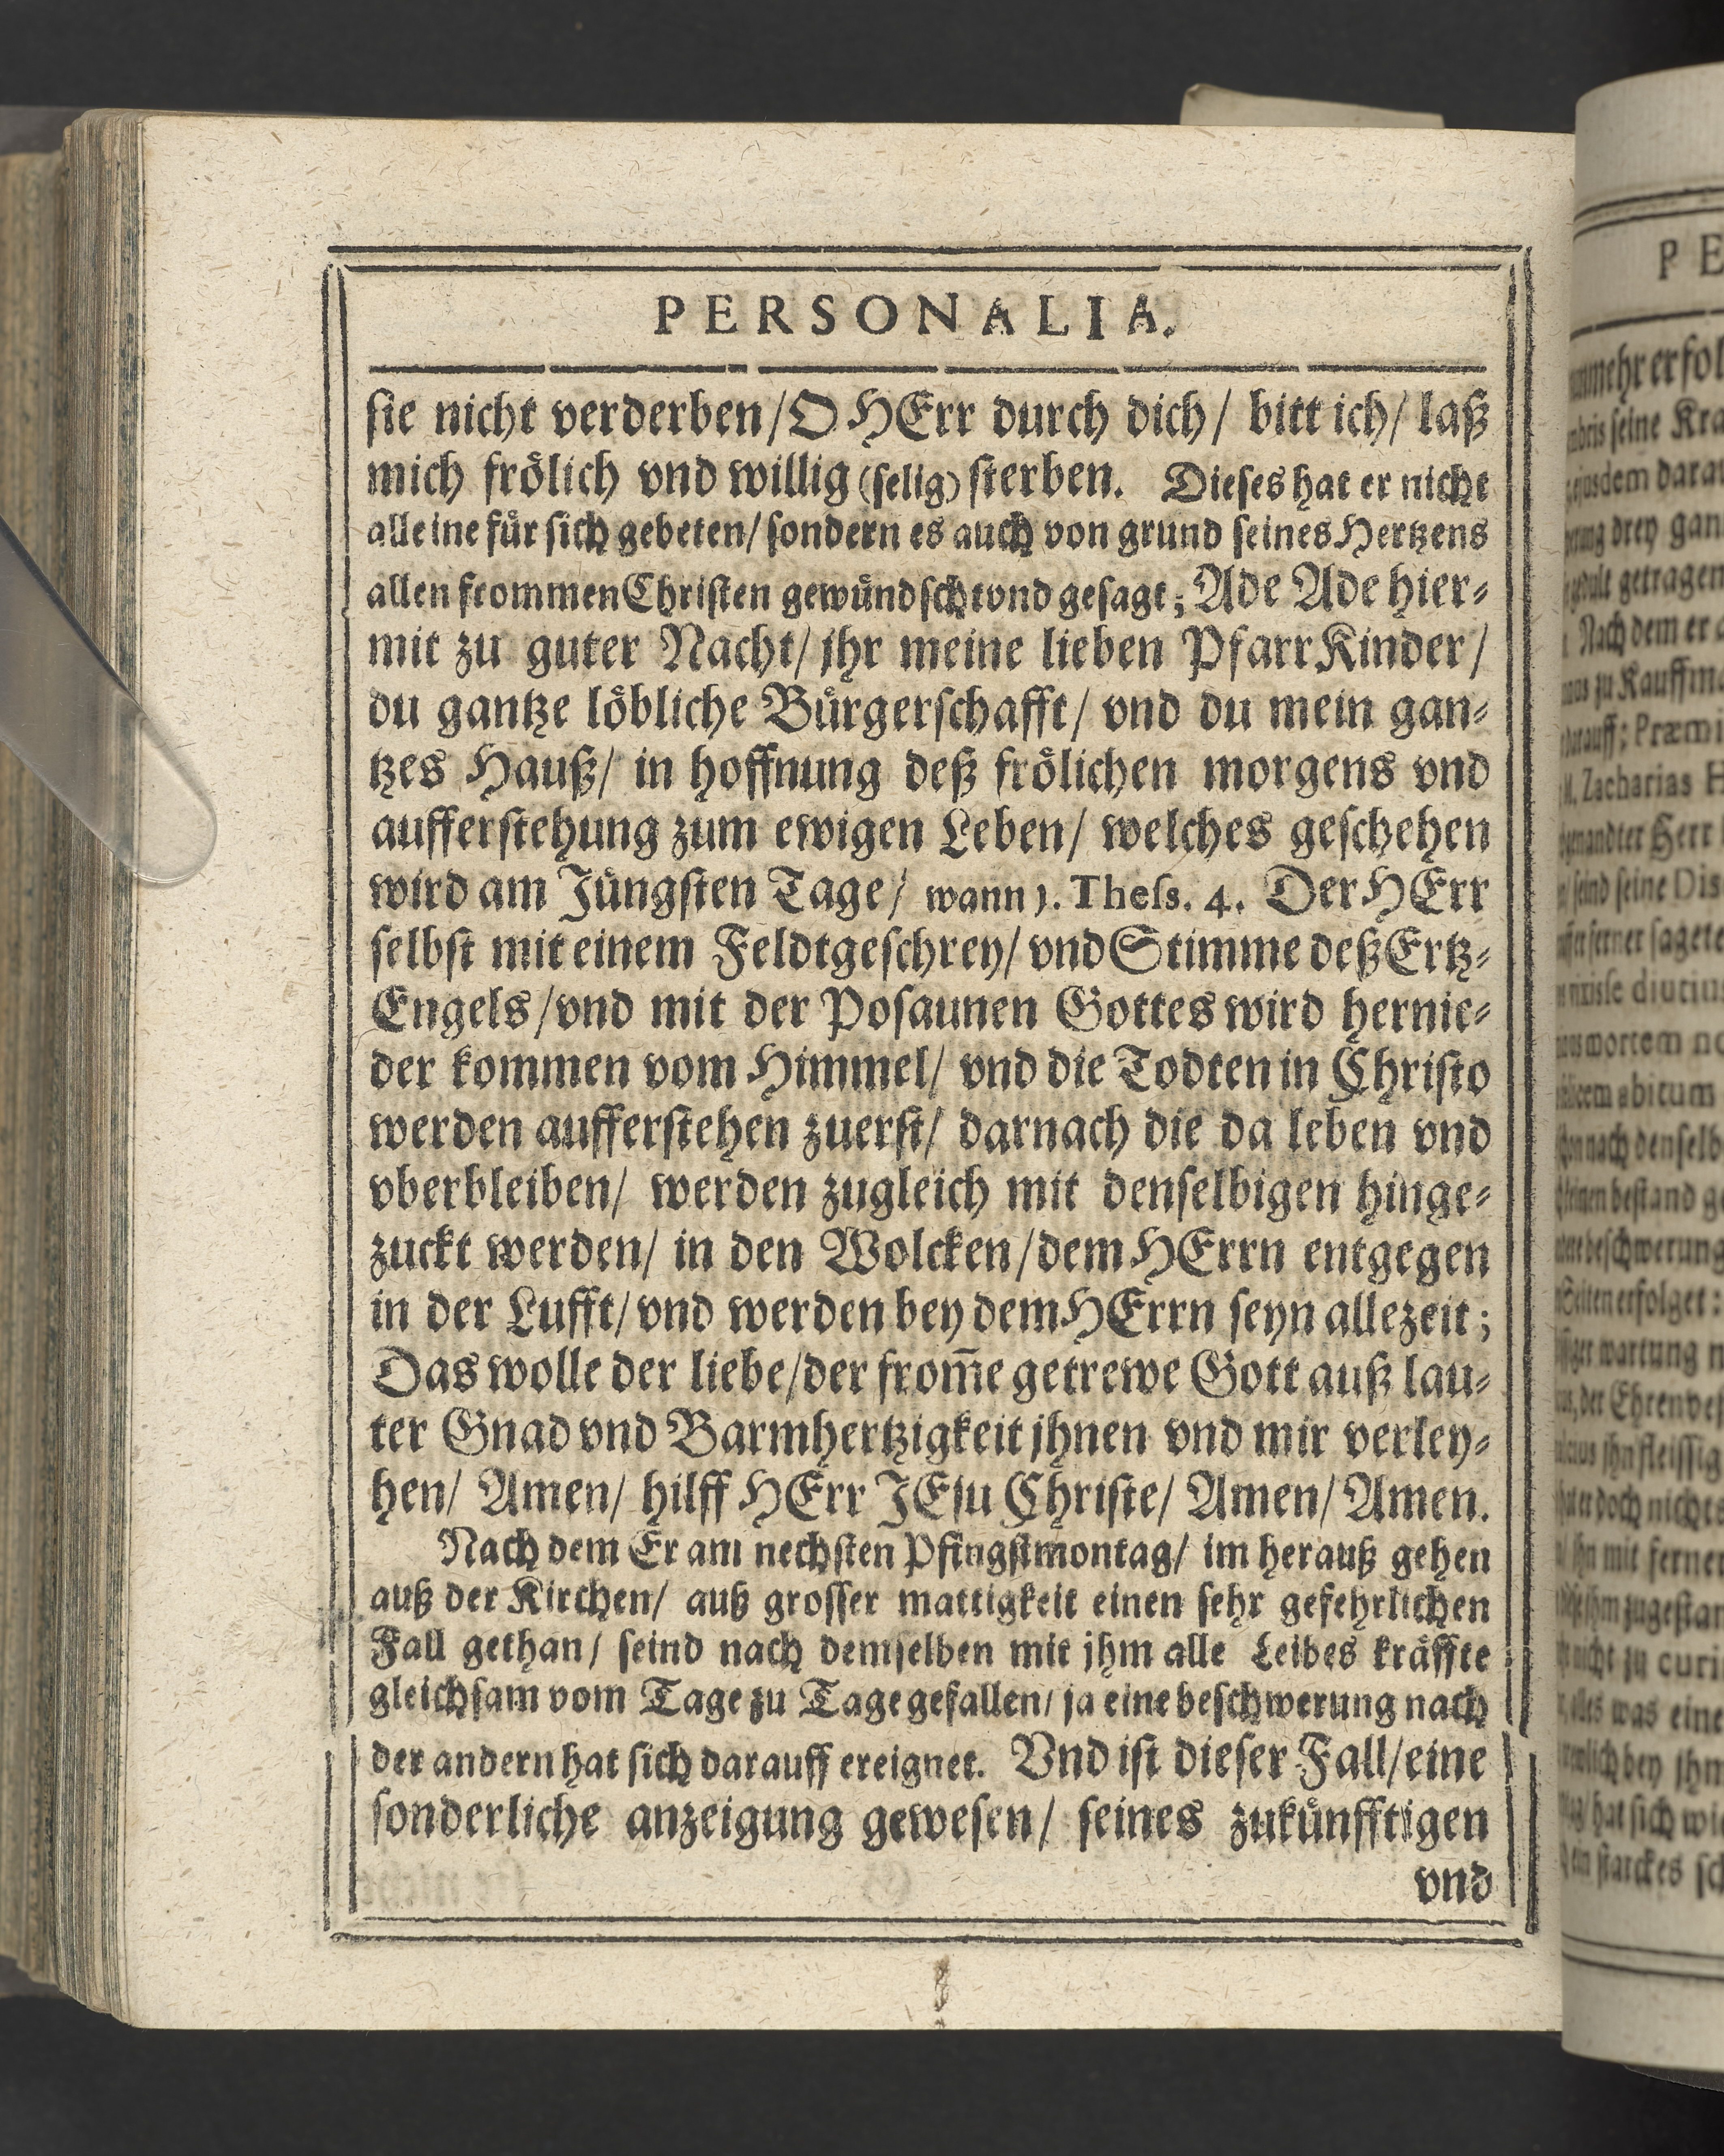 PERSONALIA.
sie nicht verderben/ O HErr durch dich/ bitt ich/ laß
mich froͤlich vnd willig (selig) sterben. Dieses hat er nicht
alleine fuͤr sich gebeten/ sondern es auch von grund seines Hertzens
allen frommen Christen gewuͤndscht vnd gesagt; Ade Ade hier-
mit zu guter Nacht/ jhr meine lieben PfarrKinder/
du gantze loͤbliche Buͤrgerschafft/ vnd du mein gan-
tzes Hauß/ in hoffnung deß froͤlichen morgens vnd
aufferstehung zum ewigen Leben/ welches geschehen
wird am Juͤngsten Tage/ wann 1. Thess. 4. Der HErr
selbst mit einem Feldtgeschrey/ vnd Stimme deß Ertz-
Engels/ vnd mit der Posaunen Gottes wird hernie-
der kommen vom Himmel/ vnd die Todten in Christo
werden aufferstehen zuerst/ darnach die da leben vnd
vberbleiben/ werden zugleich mit denselbigen hinge-
zuckt werden/ in den Wolcken/ dem HErrn entgegen
in der Lufft/ vnd werden bey dem HErrn seyn allezeit;
Das wolle der liebe/ der from̃e getrewe Gott auß lau-
ter Gnad vnd Barmhertzigkeit jhnen vnd mir verley-
hen/ Amen/ hilff HErr JEsu Christe/ Amen/ Amen.
Nach dem Er am nechsten Pfingstmontag/ im herauß gehen
auß der Kirchen/ auß grosser mattigkeit einen sehr gefehrlichen
Fall gethan/ seind nach demselben mit jhm alle Leibes kraͤffte
gleichsam vom Tage zu Tage gefallen/ ja eine beschwerung nach
der andern hat sich darauff ereignet. Vnd ist dieser Fall/ eine
sonderliche anzeigung gewesen/ seines zukuͤnfftigen
vnd